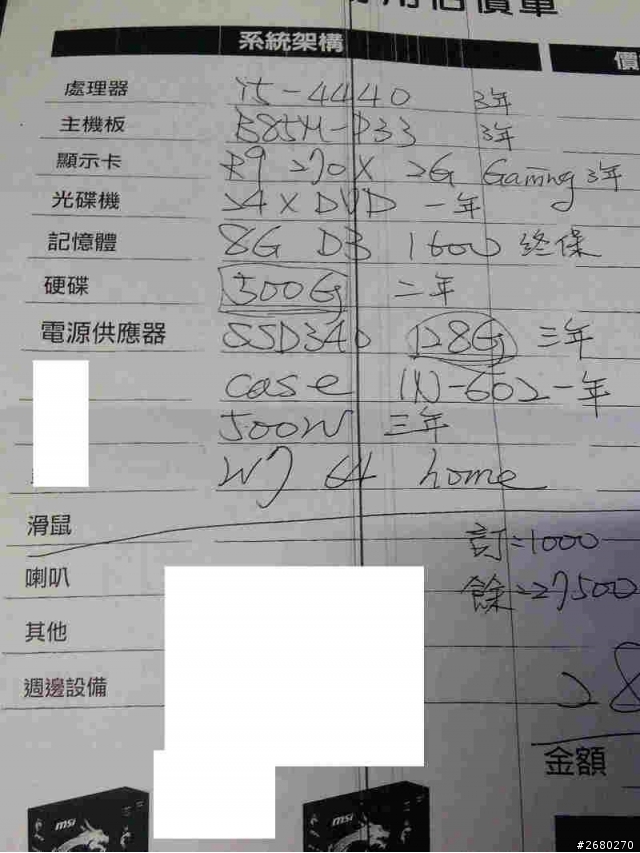 用估價單
系統架構
價
處理器 i5-4440 3年
主機板 B85M-P33 3年
顯示卡 R9 270X 2G Gaming 3年
光碟機 24X DVD 一年
記憶體 8G D3 1600 終保
硬碟 500G 二年
電源供應器 SSD340 128G 三年
case IN-602 一年
500W 三年
W7 64 home
滑鼠
訂:1000
喇叭
餘:27500
其他
週邊設備
28
金額
msi
msi
#2680270